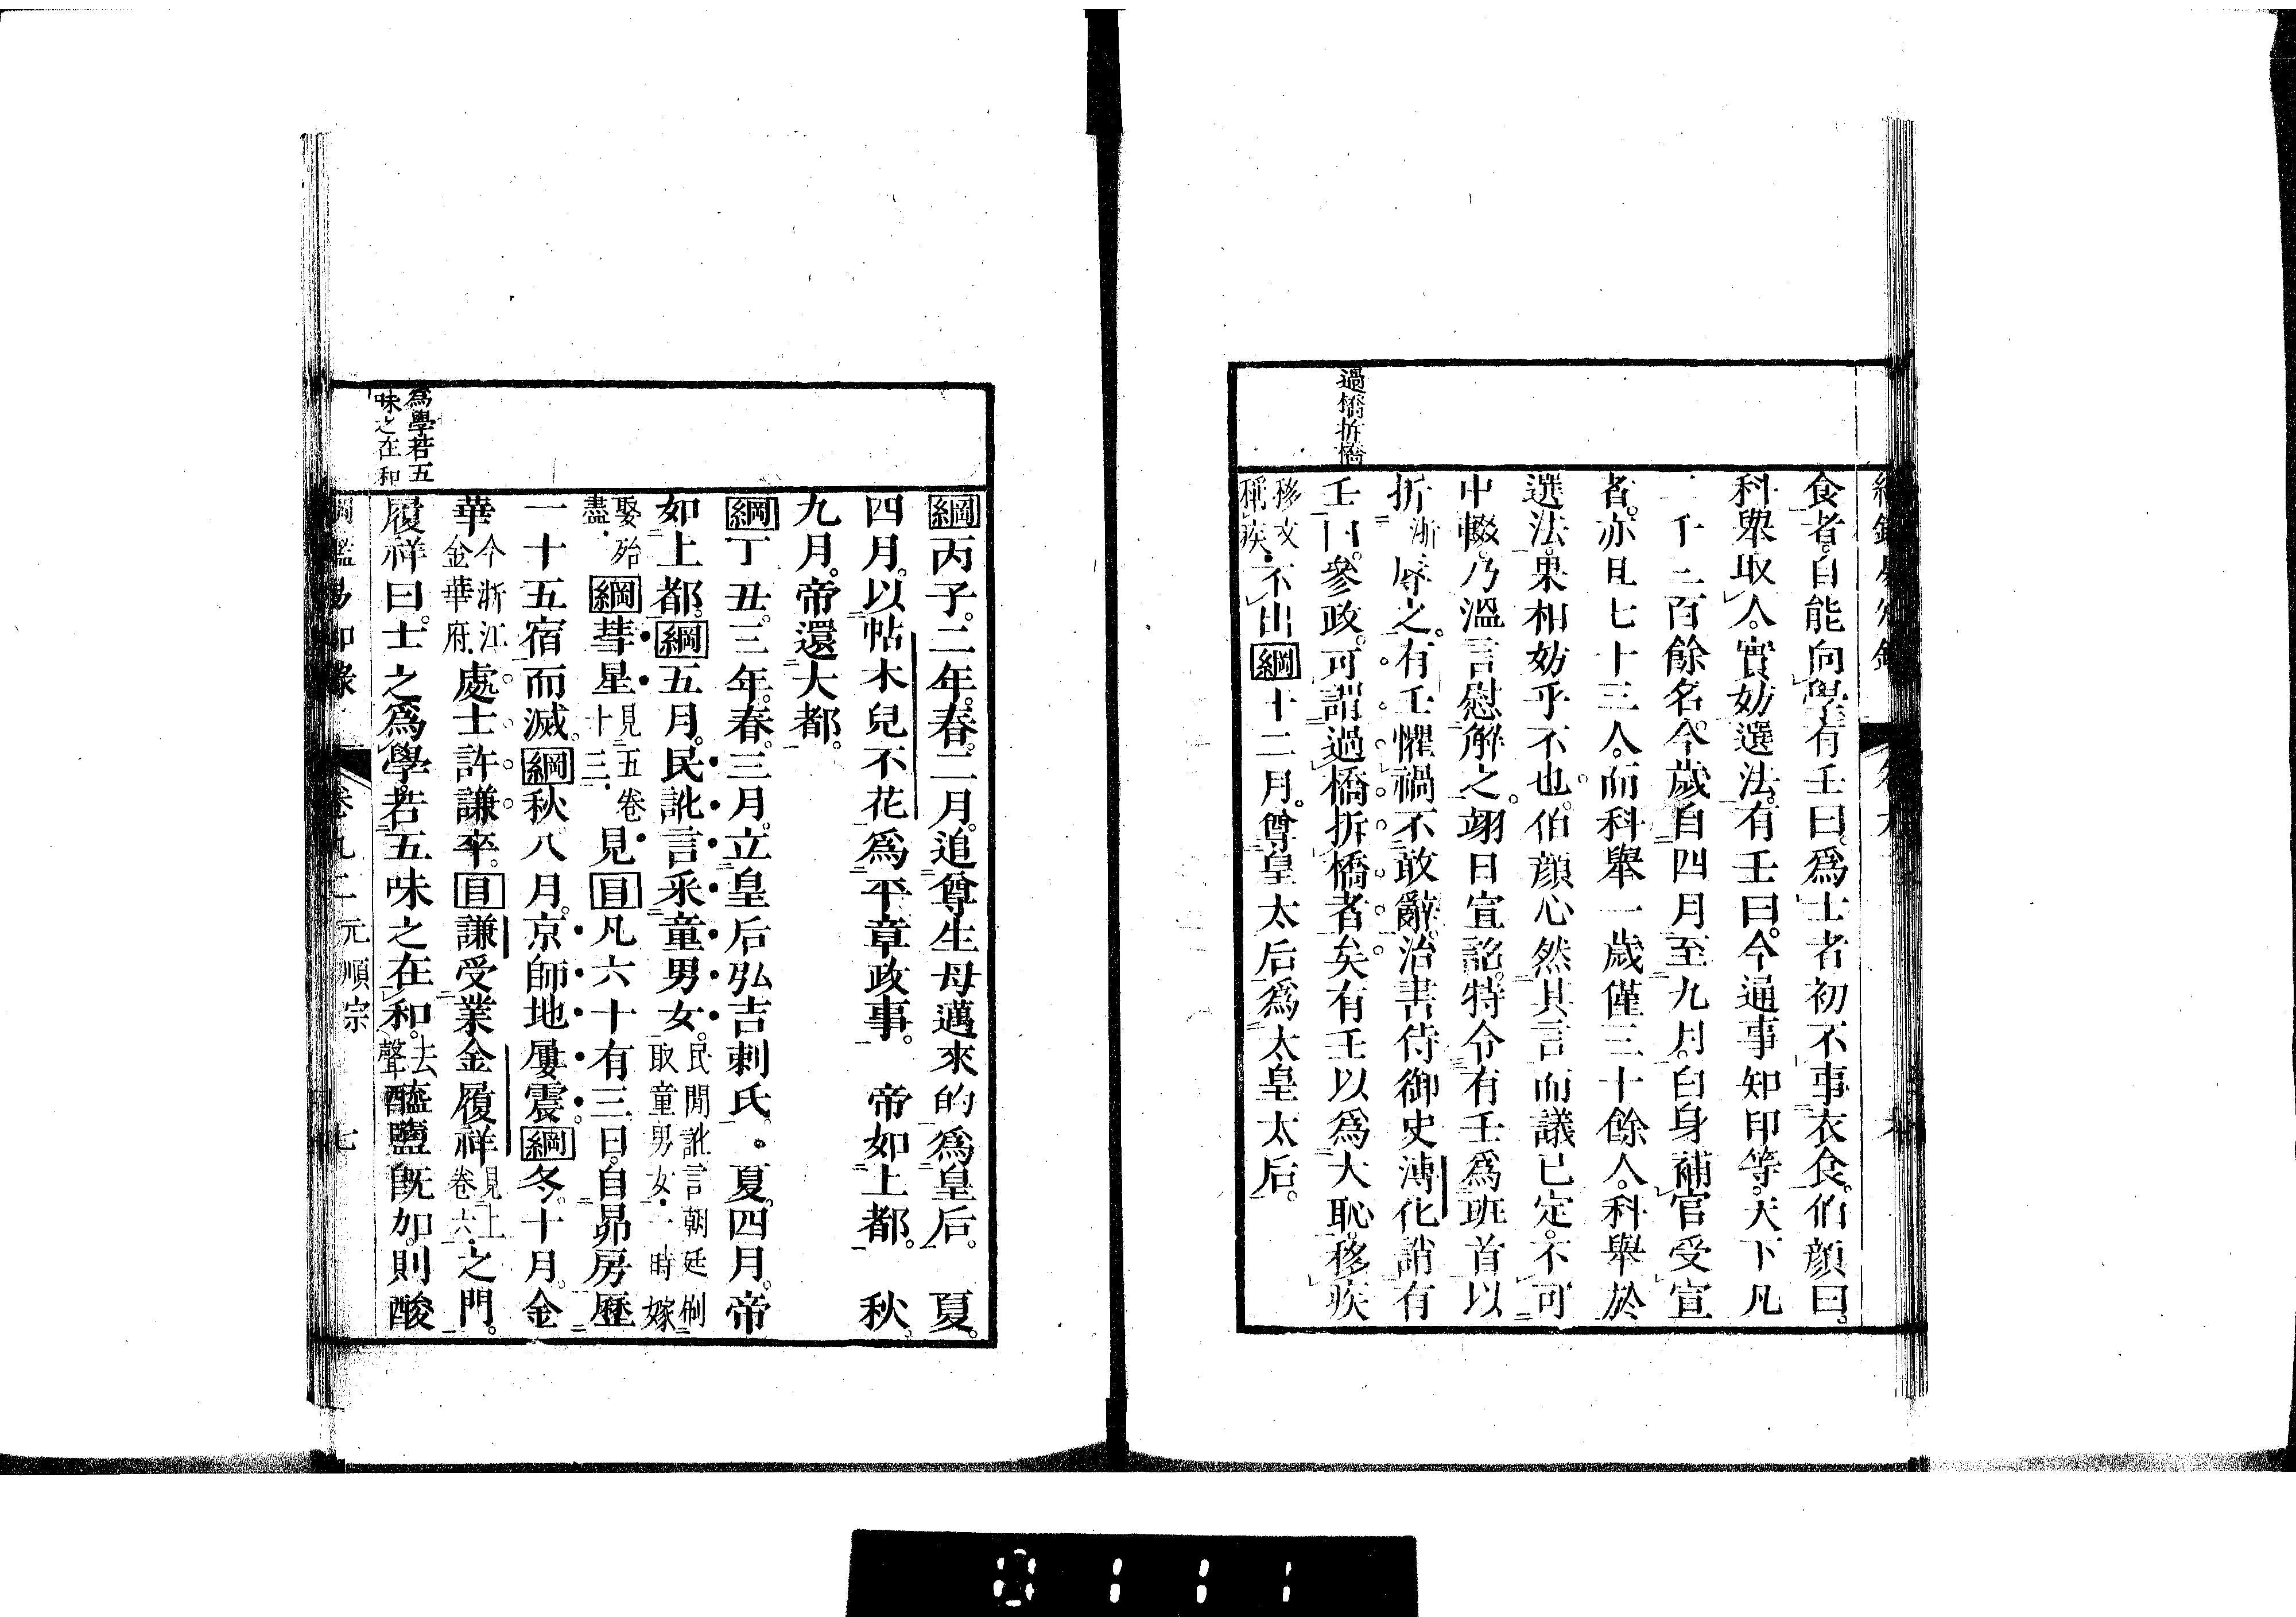 過橋拆橋
食者。自能向學。有壬曰。爲士者初不事衣食。伯顔曰。
科舉取人。實妨選法。有壬曰。今通事知印等。天下凡
二千二百餘名。今歲自四月至九月。白身補官受宣
者。亦且七十三人。而科舉一歲僅三十餘人。科舉於
選法。果相妨乎不也。伯顔心然其言。而議已定。不可
中輟。乃溫言慰解之。翊日宣詔。特令有壬爲班首以
折浙辱之。有壬懼禍不敢辭。治書侍御史溥化誚有
壬曰。參政。可謂過橋拆橋者矣。有壬以爲大恥。移疾
移文
稱疾.不出綱十二月。尊皇太后爲太皇太后。
爲學若五
味之在和
綱丙子。二年。春。二月。追尊生母邁來的爲皇后。 夏。
四月。以帖木兒不花爲平章政事。 帝如上都。 秋。
九月。帝還大都。
綱丁丑。三年。春。三月。立皇后弘吉剌氏。 夏。四月。帝
如上都。綱五月。民訛言采童男女。民間訛言朝廷刷
取童男女.一時嫁
娶殆
盡.綱彗星見五卷
十三.見目凡六十有三日。自昴房歷
一十五宿而滅。綱秋。八月。京師地屢震。綱冬。十月。金
華今浙江
金華府.處士許謙卒。目謙受業金履祥見上
卷六.之門。
履祥曰。士之爲學。若五味之在和。去
聲醯鹽既加。則酸
綱鑑易知錄 卷九二 元順宗 七